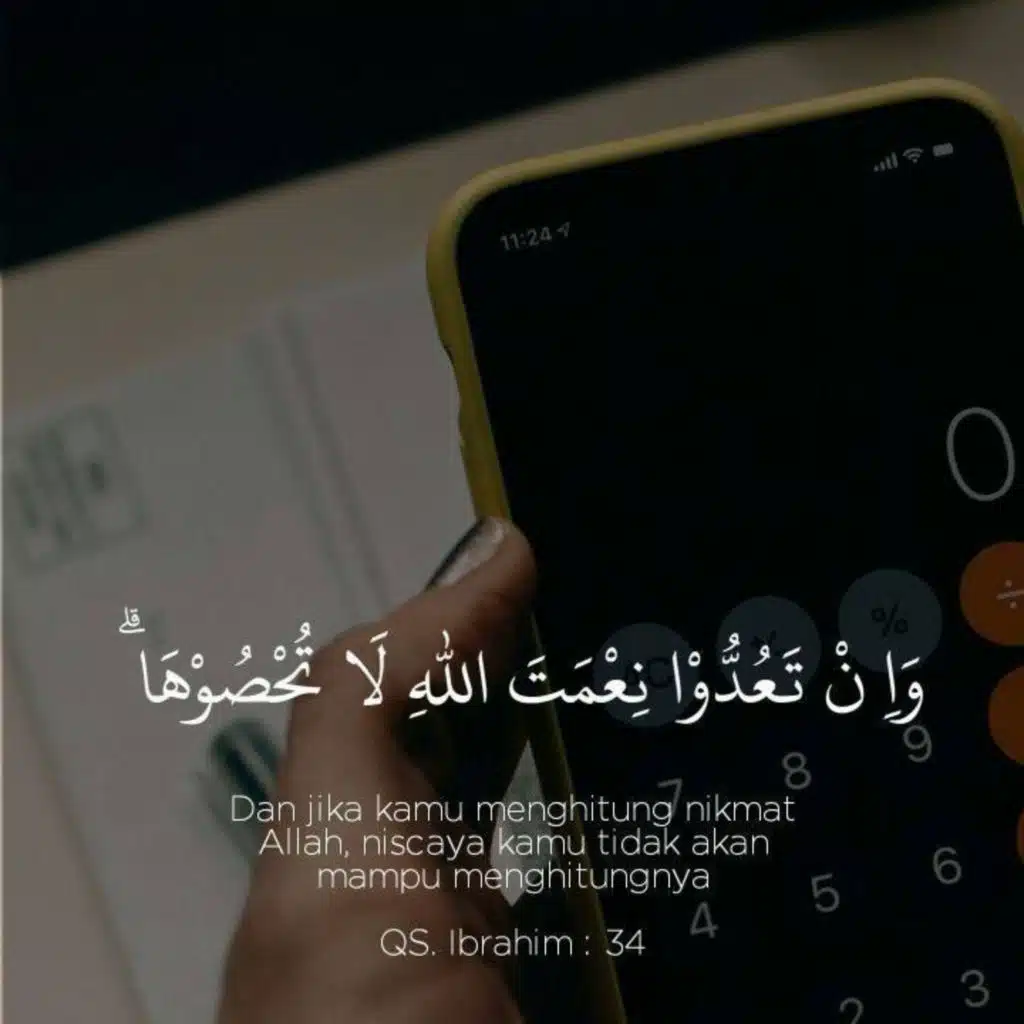 11:24
0
%
وَاِ نْ تَعُدُّوْا نِعْمَتَ اللّٰهِ لَا تُحْصُوْهَا ۗ
Dan jika kamu menghitung nikmat
Allah, niscaya kamu tidak akan
mampu menghitungnya
QS. Ibrahim : 34
÷
7 8 9
4 5 6
2 3